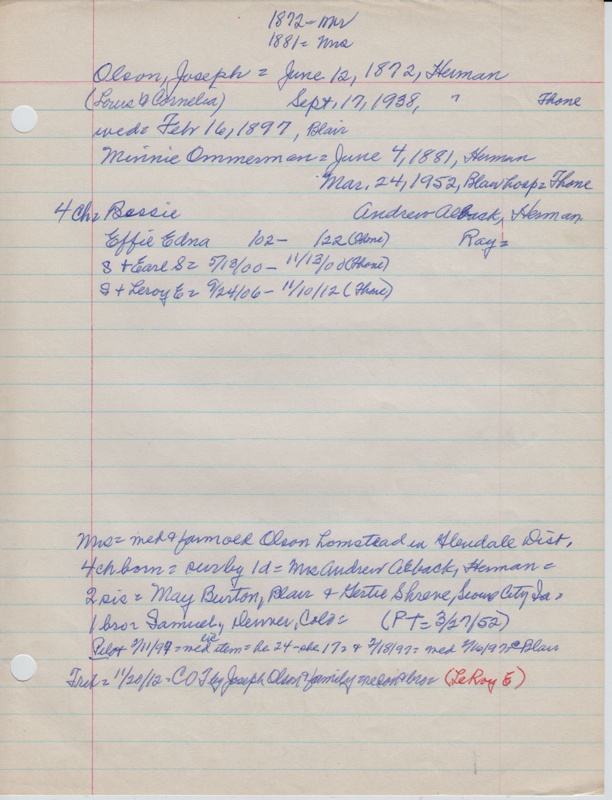 1872 - Mr
1881 = Mrs
Olson, Joseph = June 12, 1872, Herman
(Louis & Cornelia) Sept, 17, 1938, " Thone
wed = Feb 16, 1897, Blair
Minnie Ommerman = June 4, 1881, Herman
Mar. 24, 1952, Blair hosp = Thone
4 ch = Bessie Andrew Alback, Herman
Effie Edna /02 - /22 (Thone) Ray =
S + Earl S = 5/13/00 - 11/13/00 (Thone)
S + Leroy E = 9/24/06 - 11/10/12 (Thone)
Mrs = med & farm old Olson homstead in Glendale Dist,
4 ch born = sur by 1 d = Mrs Andrew Alback, Herman =
2 sis = May Burton, Blair & Gertie Shreve, Sioux City Ia =
1 bro = Samuel, Denver, Colo = (PT = 3/27/52)
Pilot 2/11/97 = lic item = he 24 - she 17 = & 2/18/97 = med 2/16/97 Blair
Trib = 11/20/12 = COT by Joseph Olson & family me son & bro = (LeRoy E)